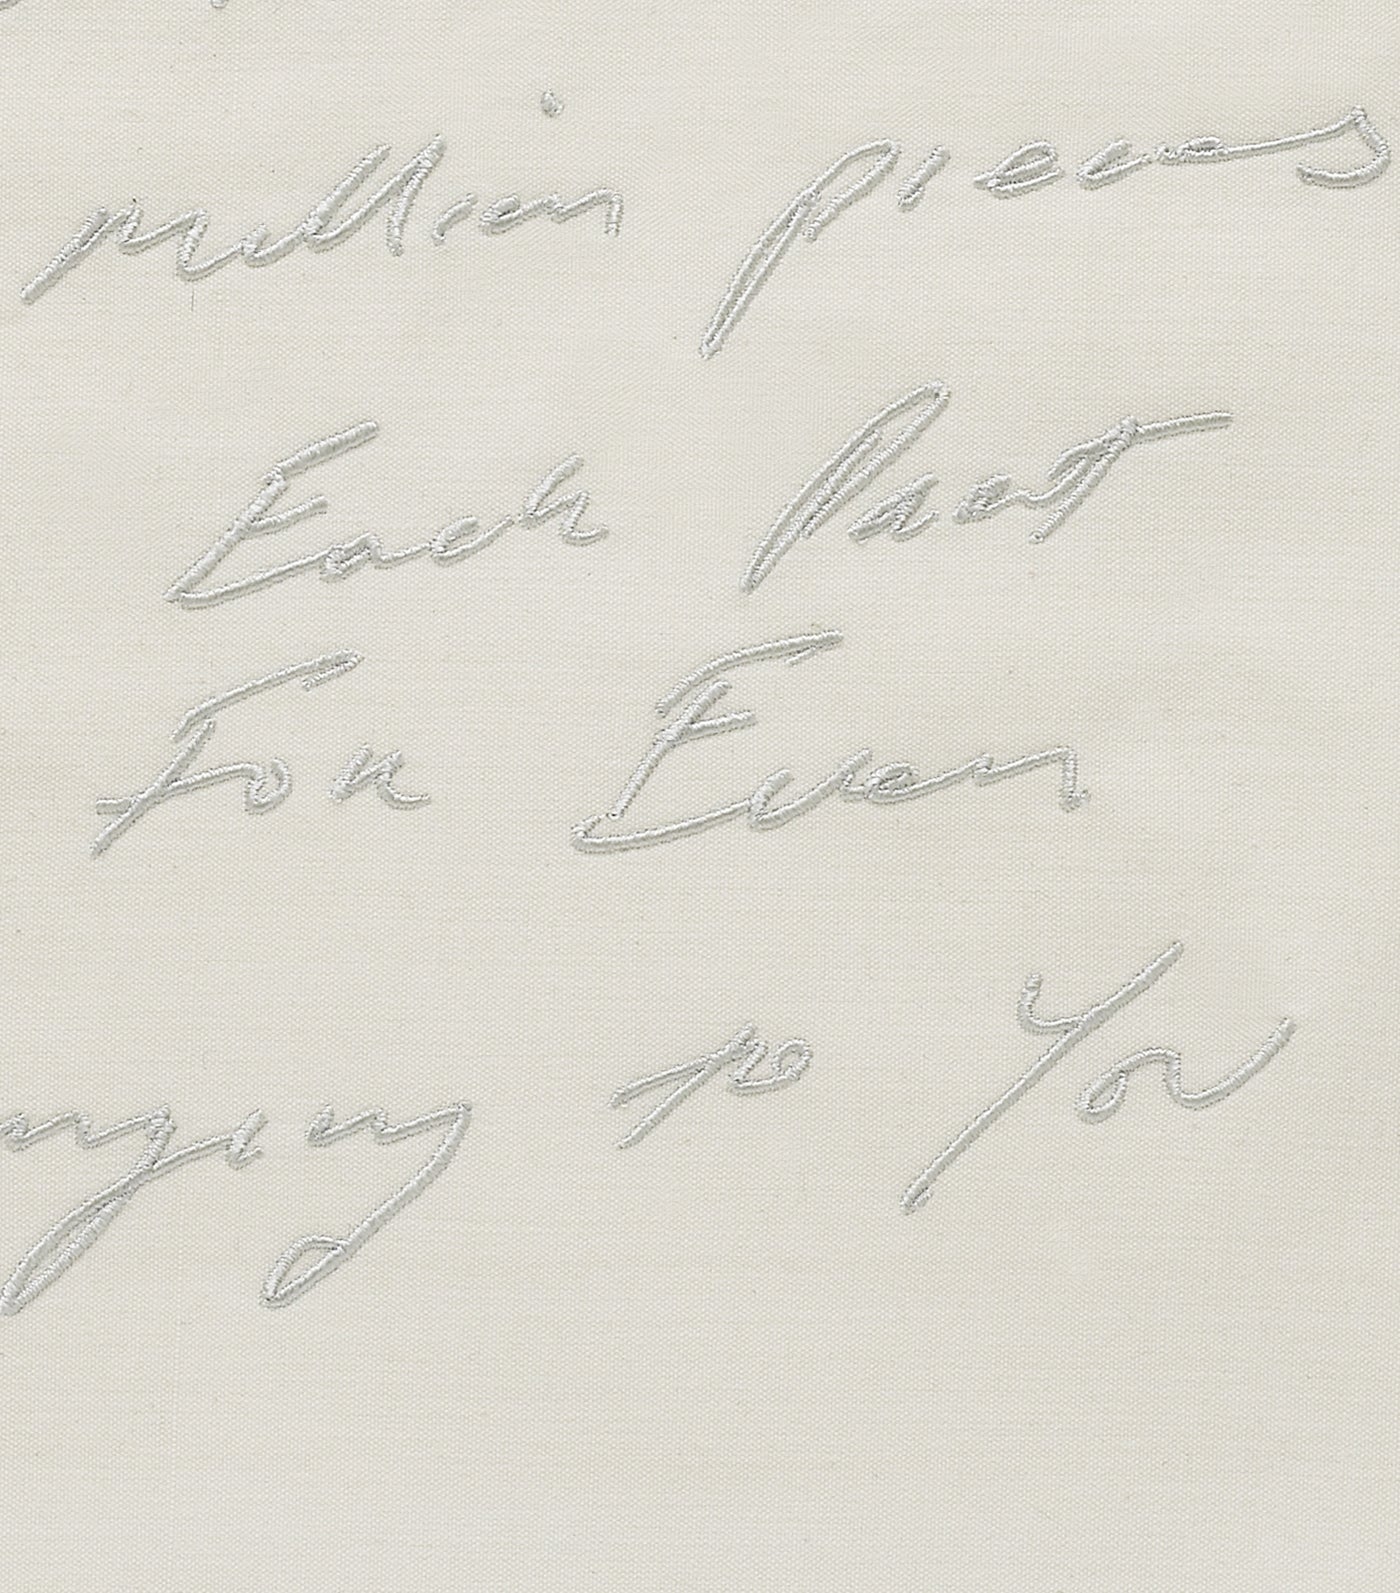 million pieces
Each Part
For Ever
nging to You